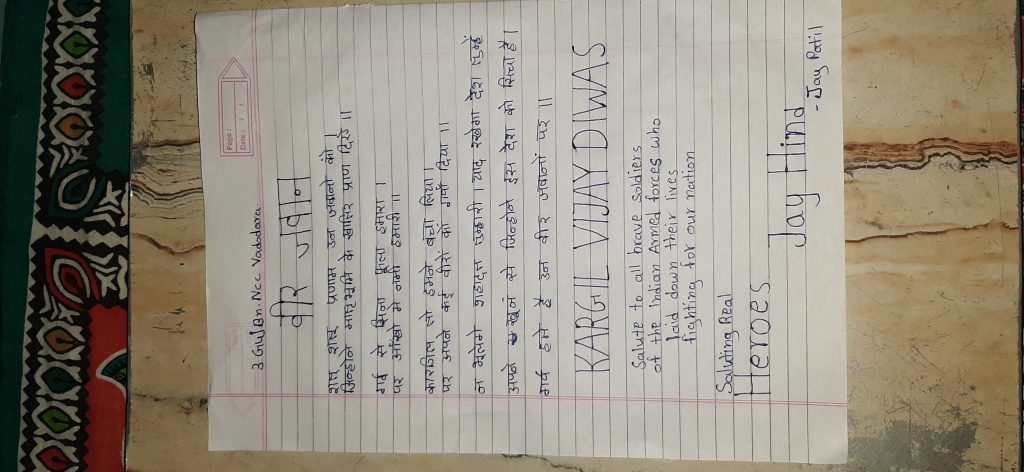 Page:
Date: / /
3 Guj Bn. Ncc Vadodara
वीर जवान
शत् शत् प्रणाम उन जवानों को,
जिन्होने मातृभूमि के खातिर प्राण दिए ॥
गर्व से सिना फूला हमारा ।
पर आँखो मे नमी हमारी ॥
कारगील तो हमने बचा लिया।
पर अपने कई वीरो को गवाँ दिया ॥
न भूलेगे शहादत्त तुम्हारी । याद रखेगा देश तुम्हें
अपने खून से जिन्होने इस देश को सिचा है।
गर्व हमे है उन वीर जवानों पर ॥
KARGIL VIJAY DIWAS
Salute to all brave soldiers
of the Indian Armed forces who
laid down their lives
fighting for our nation
Saluting Real
Heroes
Jay Hind
- Jay Patil